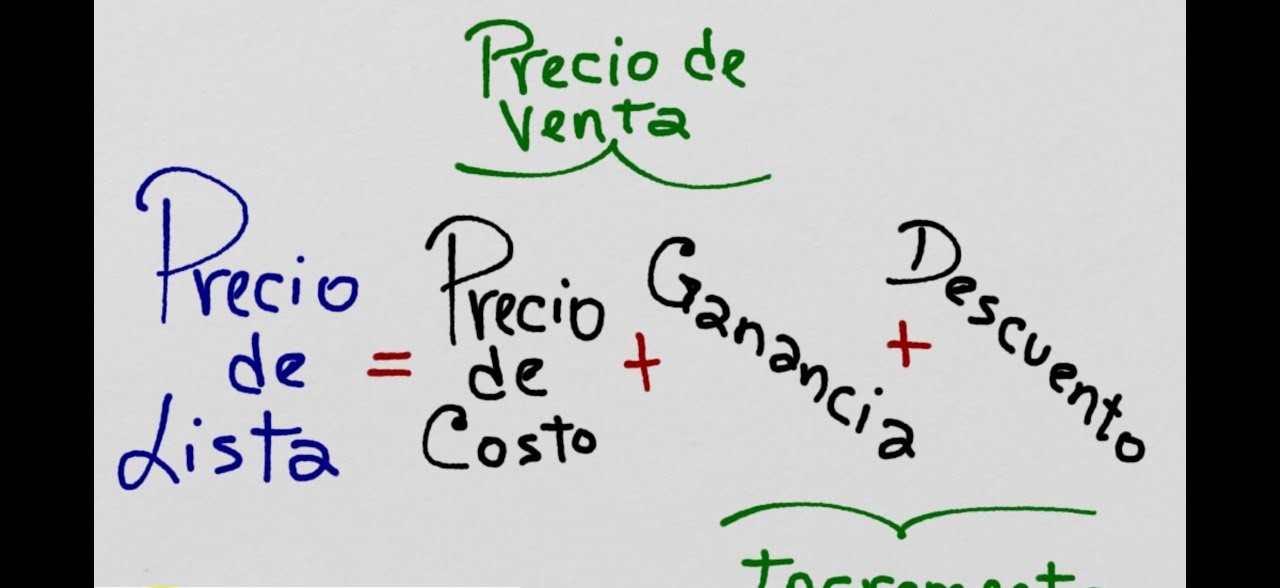 Precio de
venta
Precio
de
Lista
=
Precio
de
Costo
+
Ganancia
+
Descuento